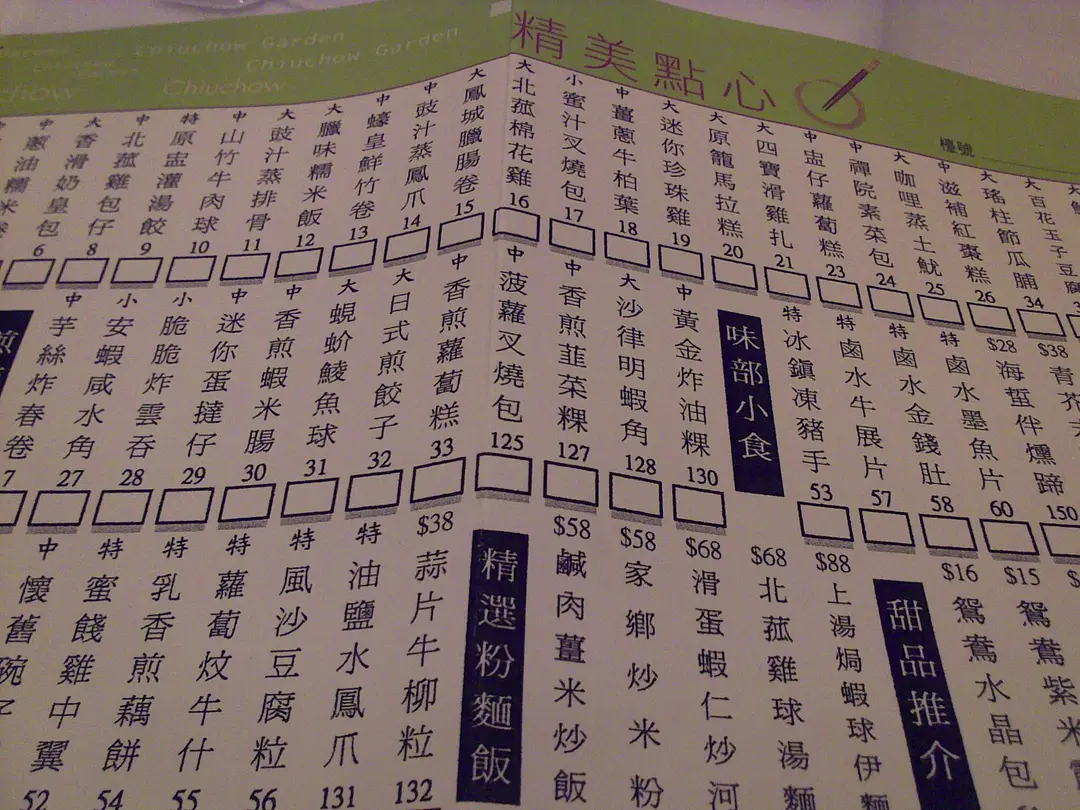 Chiuchow Garden
Chiuchow Garden
Chiuchow
精美點心
檯號
蔥油糯米卷
大 香滑奶皇包 6
中 北菰雞包仔 8
特 原盅灌湯餃 9
中 山竹牛肉球 10
大 豉汁蒸排骨 11
大 臘味糯米飯 12
中 蠔皇鮮竹卷 13
中 豉汁蒸鳳爪 14
大 鳳城臘腸卷 15
大 北菰棉花雞 16
小 蜜汁叉燒包 17
中 薑蔥牛柏葉 18
大 迷你珍珠雞 19
大 原籠馬拉糕 20
大 四寶滑雞扎 21
中 盅仔蘿蔔糕 23
中 禪院素菜包 24
大 咖哩蒸土魷 25
中 滋補紅棗糕 26
大 瑤柱節瓜脯 34
大 百花玉子豆腐
大
煎
中 芋絲炸春卷
小 安蝦咸水角 27
小 脆脆炸雲吞 28
中 迷你蛋撻仔 29
中 香煎蝦米腸 30
大 蜆蚧鯪魚球 31
大 日式煎餃子 32
中 香煎蘿蔔糕 33
中 菠蘿叉燒包 125
中 香煎韮菜粿 127
大 沙律明蝦角 128
中 黃金炸油粿 130
味部小食
特 冰鎮凍豬手 53
特 鹵水牛展片 57
特 鹵水金錢肚 58
特 鹵水墨魚片 60
$28 海蜇伴燻蹄 150
$38 青芥
中 懷舊碗
特 蜜餞雞中翼 52
特 乳香煎藕餅 54
特 蘿蔔炆牛什 55
特 風沙豆腐粒 56
特 油鹽水鳳爪 131
$38 蒜片牛柳粒 132
精選粉麵飯
$58 鹹肉薑米炒飯
$58 家鄉炒米粉
$68 滑蛋蝦仁炒河
$68 北菰雞球湯麵
$88 上湯焗蝦球伊麵
甜品推介
$16 鴛鴦水晶包
$15 鴛鴦紫米